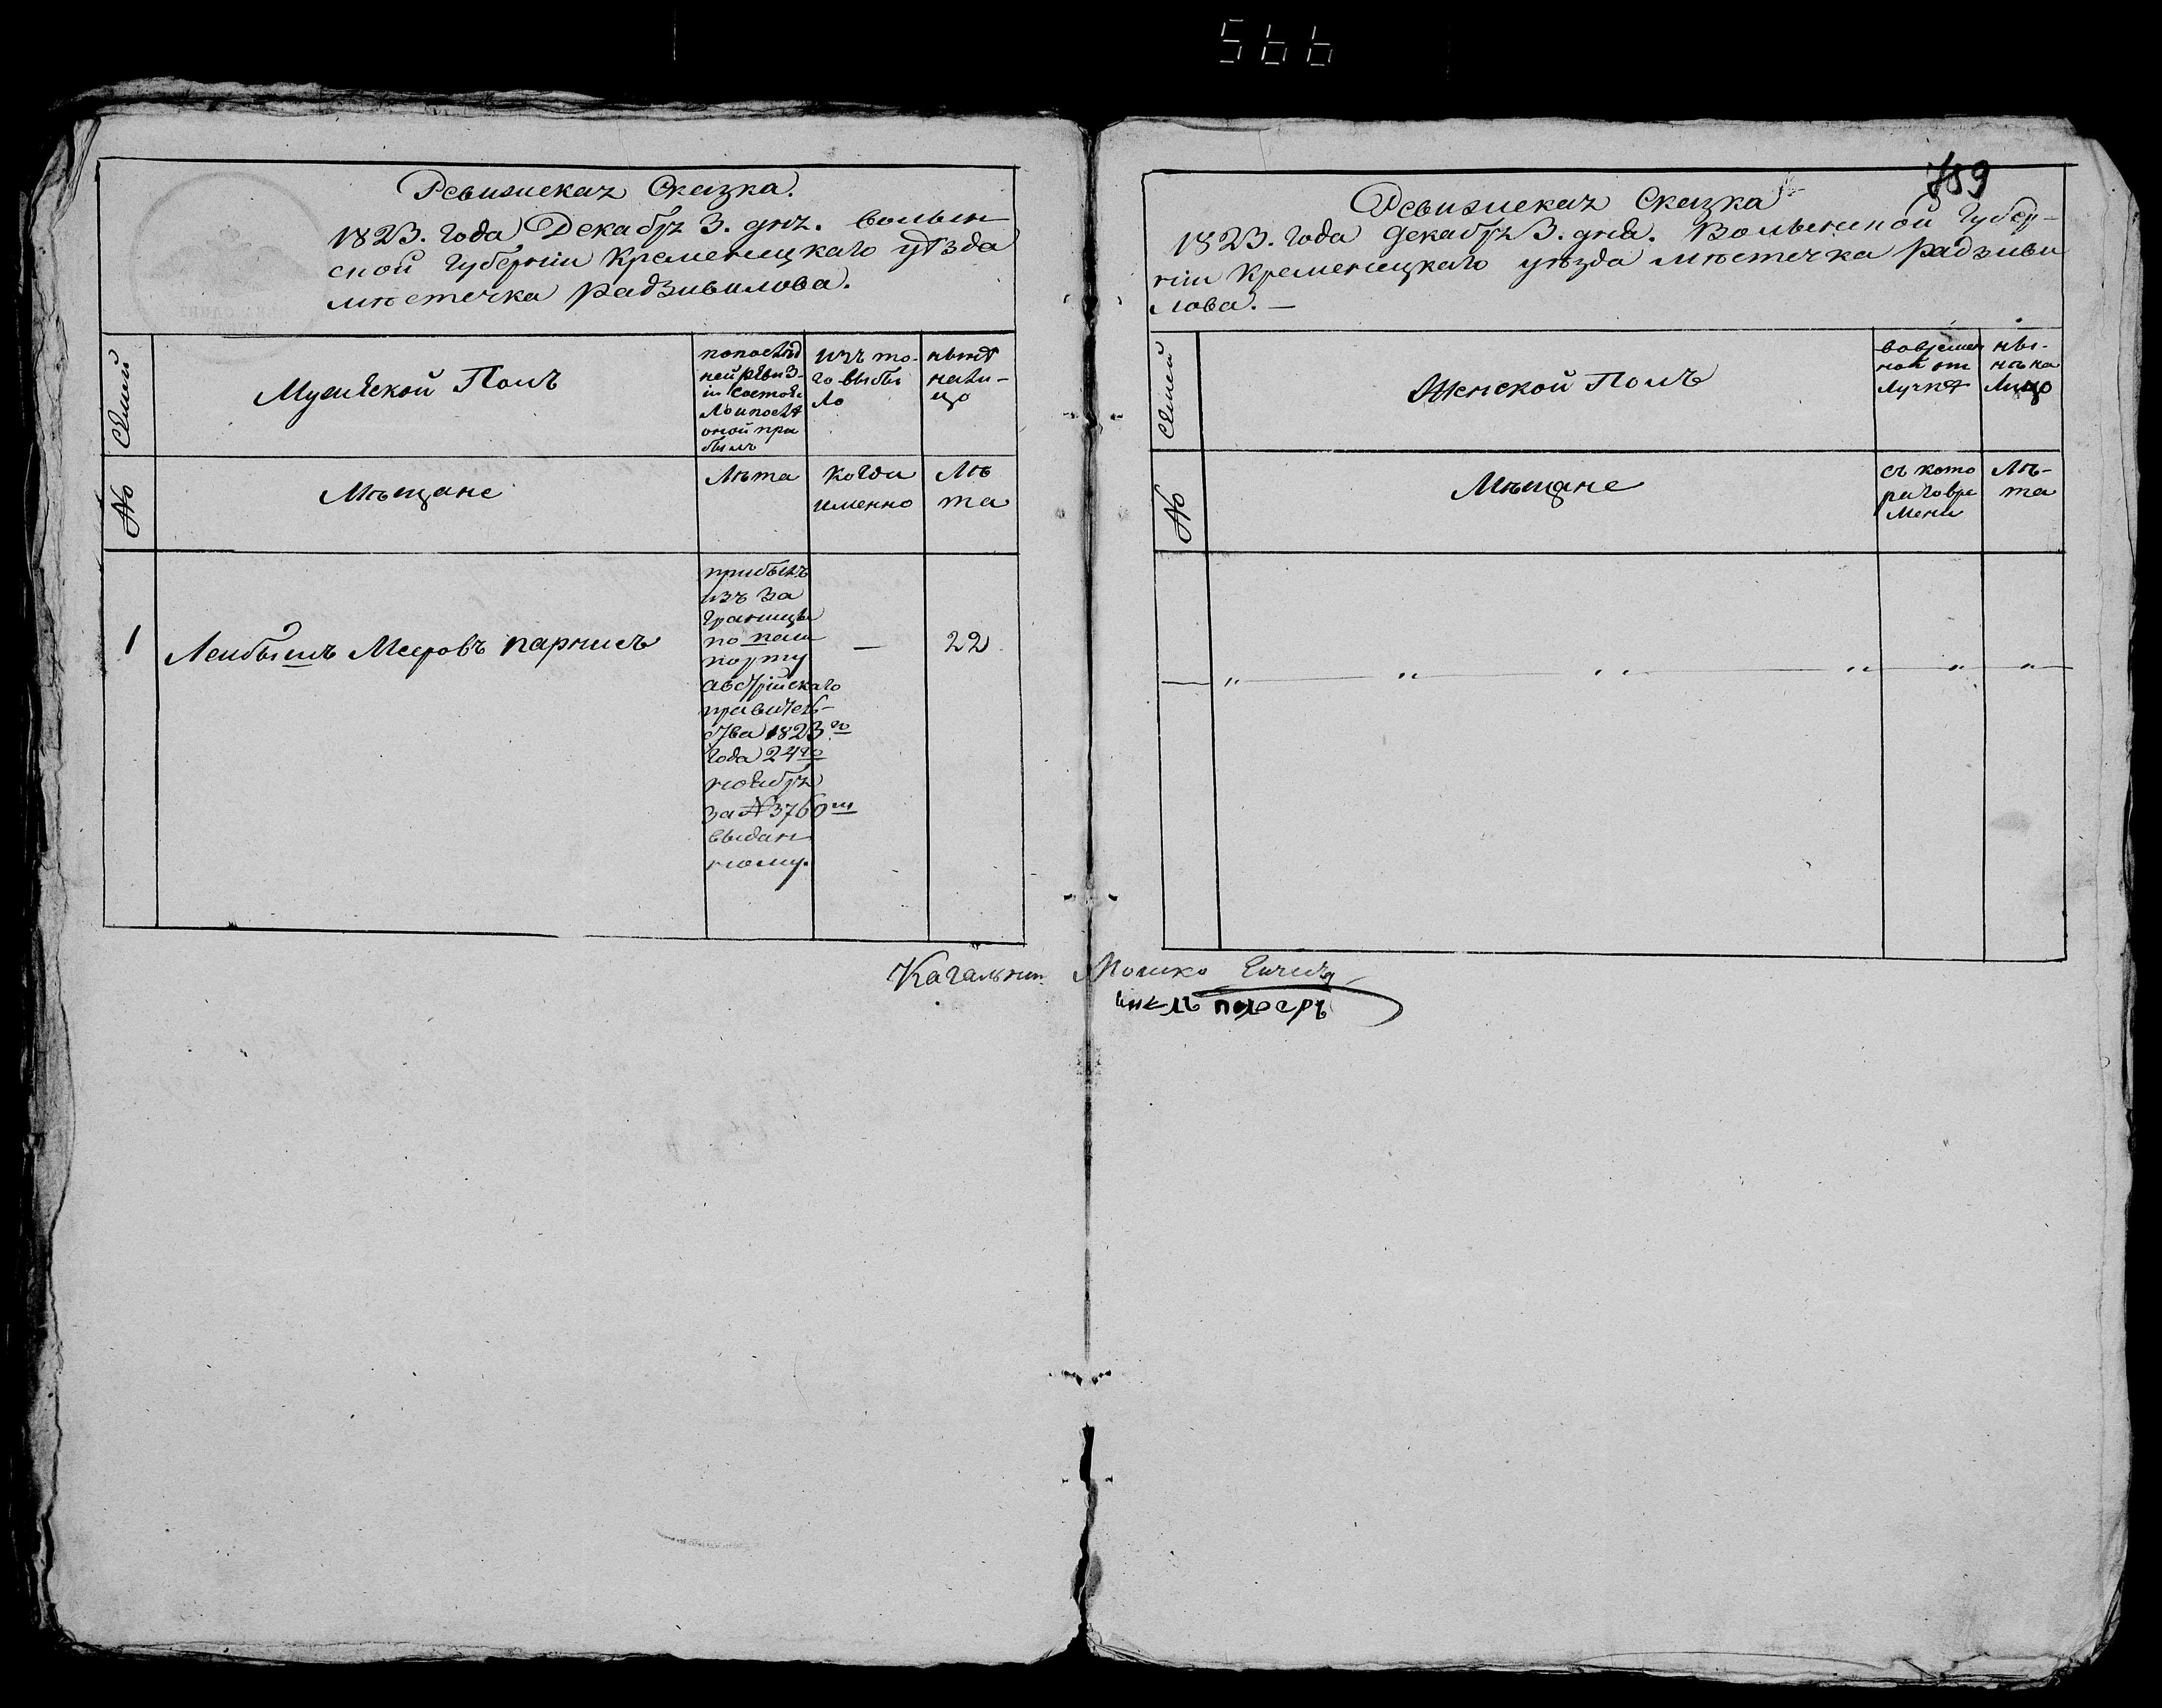 566
Ревизская Сказка.
1823. года Декабря 3. дня. Волын
ской Губерніи Кременецкаго уѣзда
мѣстечка Радзивилова.
Семей
Мужеской Полъ
попослѣд
ней ревиз-
іи состоя
ло и послѣ
оной при
былъ
изъ то-
го выбы
ло
нынѣ
нали-
цо
№
Мѣщане
Лѣта
когда
именно
Лѣ
та
1
Лейбышъ Мееровъ парнисъ
прибылъ
изъ за
границы
по паш
порту
австрійскаго
правитель-
ства 1823го
года 24го
ноября
за № 3760м
выдан
ному.
—
22
789
Ревизская Сказка
1823. года декабря 3. дня. Волынской Губер-
ніи Кременецкаго уѣзда мѣстечка Радзиви
лова. —
Семей
Женской Полъ
вовремен
ной от
лучкѣ
ны-
нѣ на
лицо
№
Мѣщане
съ кото
раго вре
мени
Лѣ-
та
Кагальный Мошко